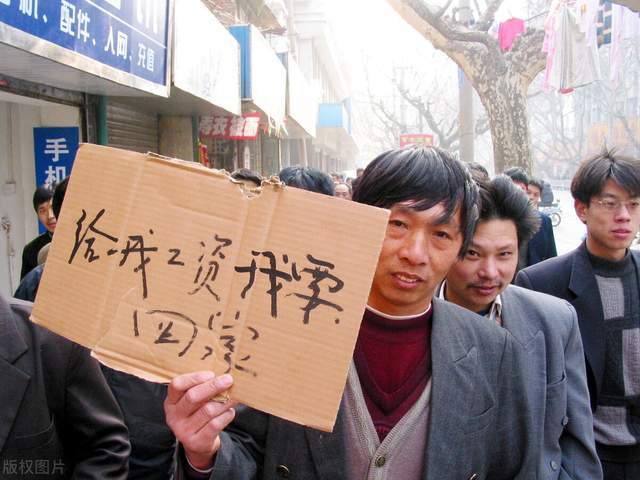 机、配件、入网、充值
手机
给我工资我要
回家
版权图片